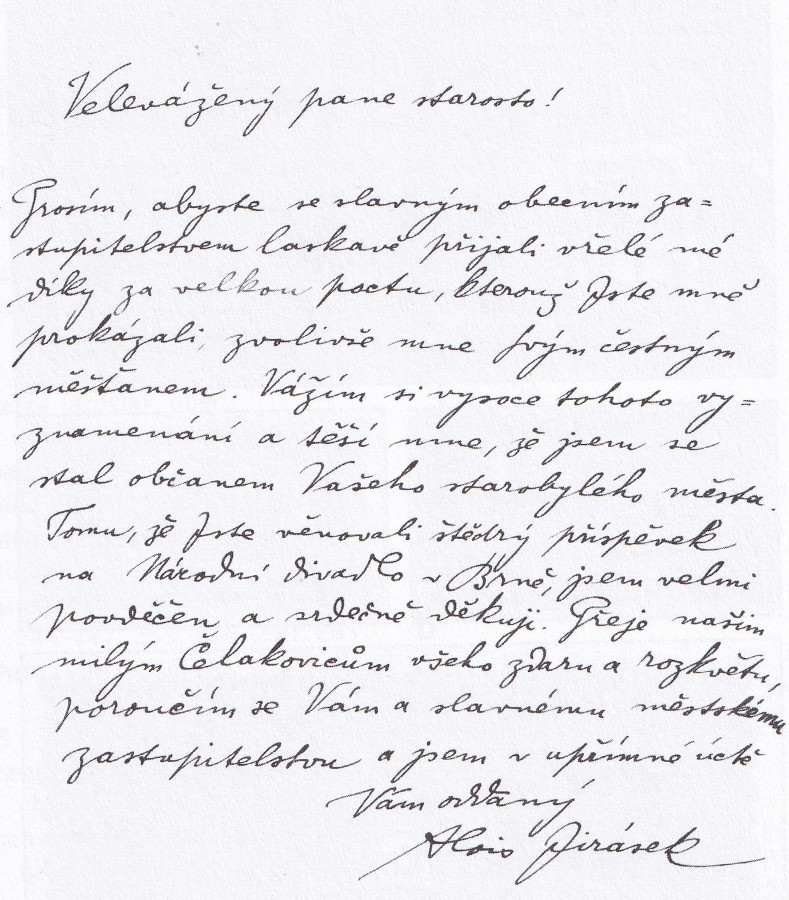 Velevážený pane starosto!
Prosím, abyste se slavným obecním za=
stupitelstvem laskavě přijali vřelé mé
díky za velkou poctu, kterouž Jste mně
prokázali, zvolivše mne svým čestným
měšťanem. Vážím si vysoce tohoto vy=
znamenání a těší mne, že jsem se
stal občanem Vašeho starobylého města.
Tomu, že Jste věnovali štědrý příspěvek
na Národní divadlo v Brně, jsem velmi
povděčen a srdečně děkuji. Přeje našim
milým Čelakovicům všeho zdaru a rozkvětu,
poroučím se Vám a slavnému městskému
zastupitelstvu a jsem v upřímné úctě
Vám oddaný
Alois Jirásek